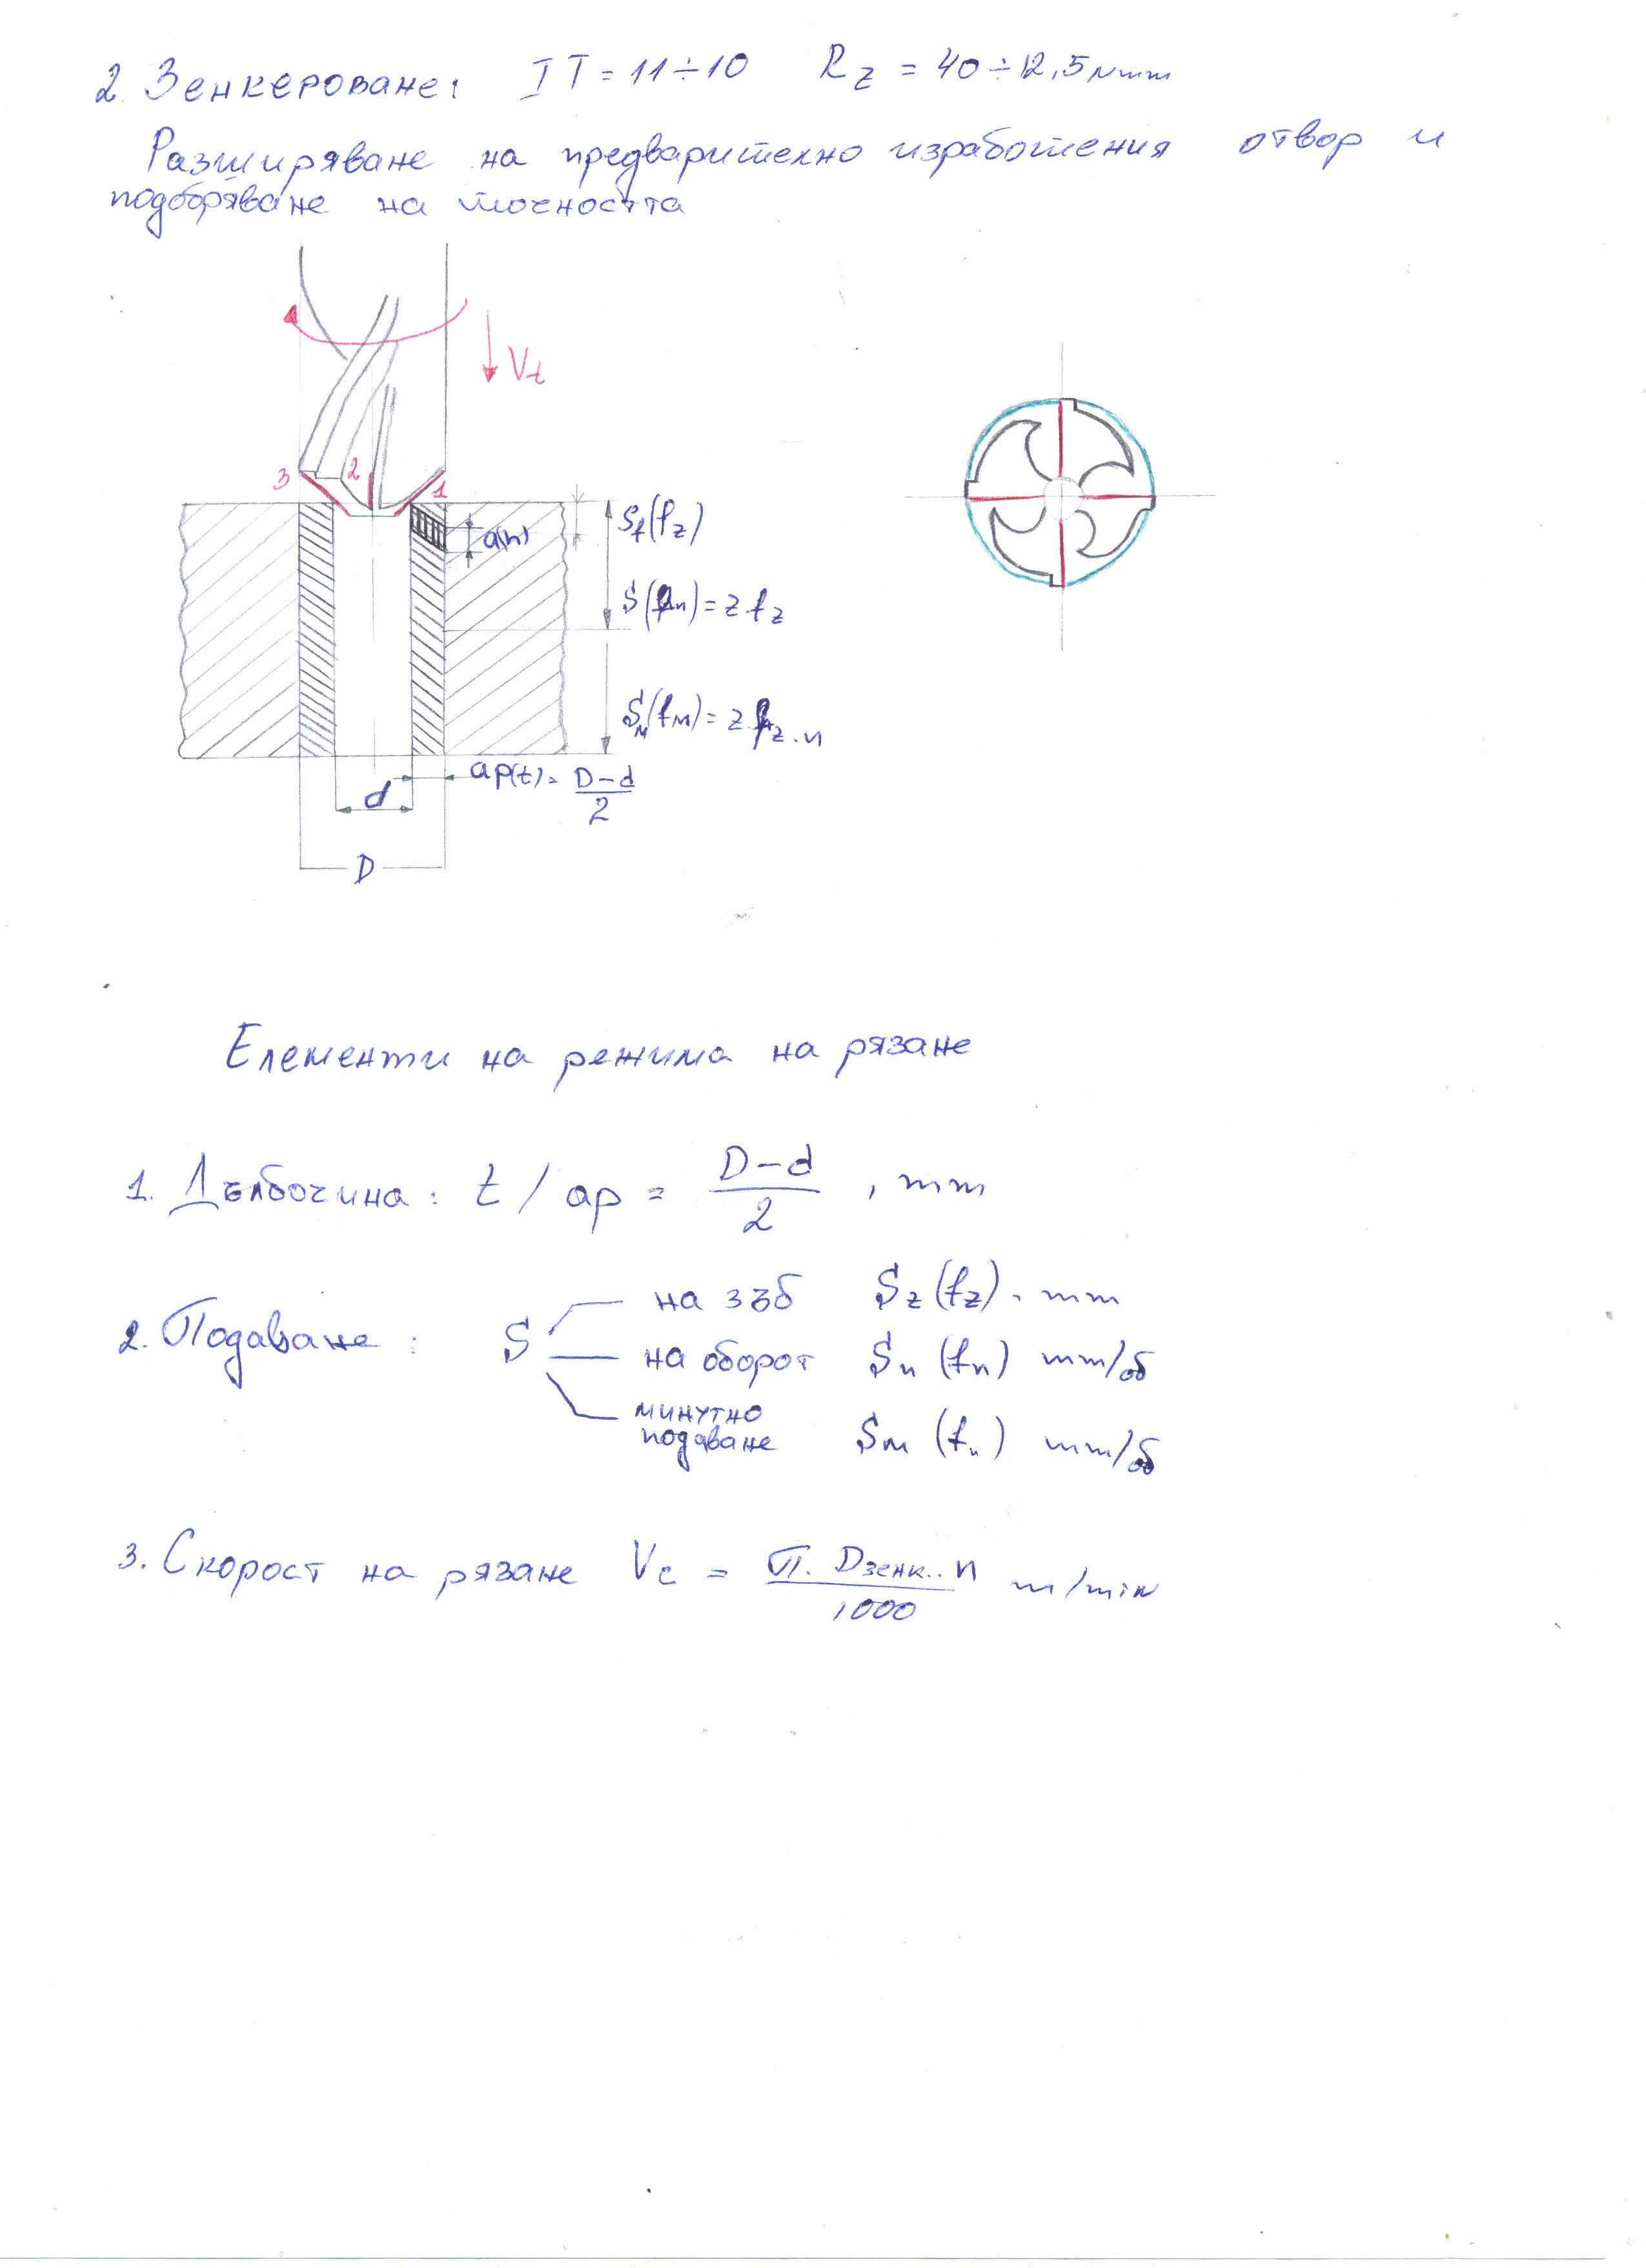 2. Зенкероване: IT = 11÷10 Rz = 40÷12,5 мmm
Разширяване на предварително изработения отвор и
подобряване на точността
Vt
3 2 1
a(h)
Sz(fz)
S(fn) = z fz
Sм(fм) = z fz . n
ap(t) = D-d/2
d
D
Елементи на режима на рязане
1. Дълбочина: t / ap = D-d/2 , mm
2. Подаване: S
на зъб Sz (fz). mm
на оборот Sn (fn) mm/об
минутно
подаване Sm (fn) mm/об
3. Скорост на рязане Vc = П. Dзенк.. n/1000 m/min